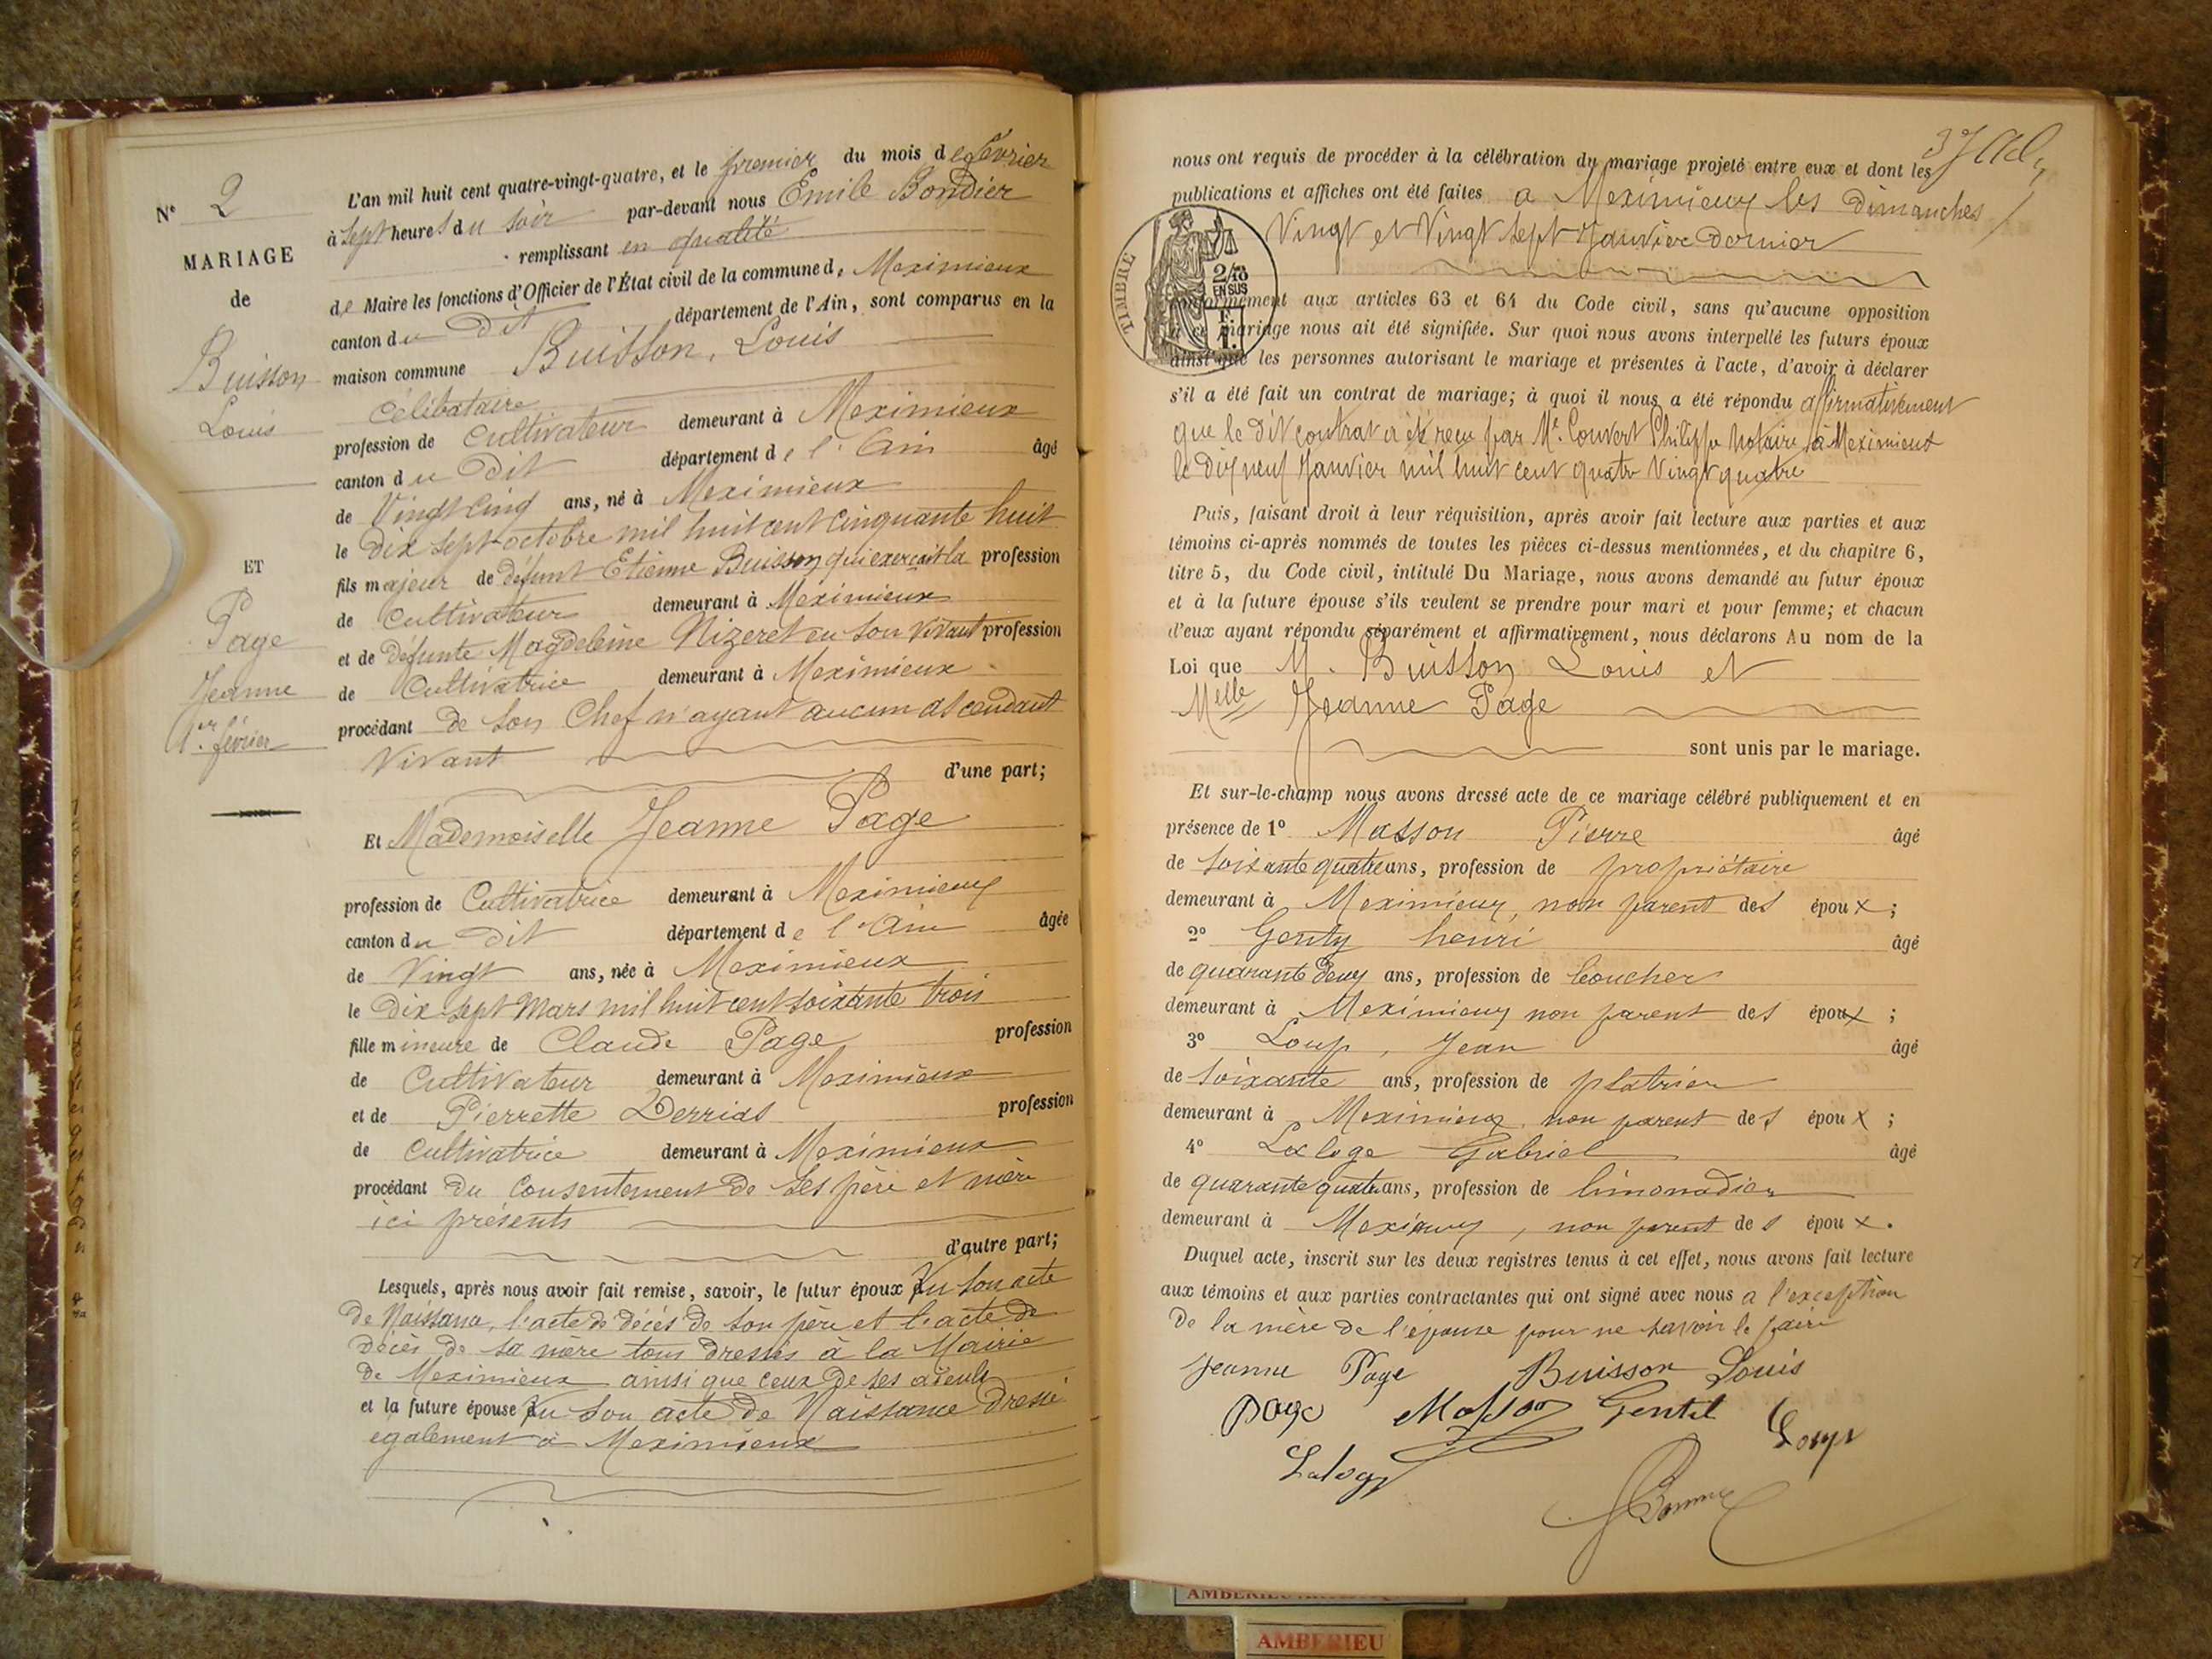 Nº 2
MARIAGE
de
Buisson
Louis
ET
Page
Jeanne
1er février
L'an mil huit cent quatre-vingt-quatre, et le premier du mois de février
à sept heures du soir par-devant nous Emile Bondier
remplissant en qualité
de Maire les fonctions d'Officier de l'État civil de la commune d, Meximieux
canton du dit département de l'Ain, sont comparus en la
maison commune Buisson, Louis
célibataire
profession de cultivateur demeurant à Meximieux
canton du dit département de l'Ain âgé
de Vingt cinq ans, né à Meximieux
le dix sept octobre mil huit cent cinquante huit
fils majeur de défunt Etienne Buisson qui exerçait la profession
de cultivateur demeurant à Meximieux
et de défunte Magdeleine Nizeret en son vivant profession
de Cultivatrice demeurant à Meximieux
procédant de son Chef n'ayant aucun ascendant
Vivant
d'une part;
Et Mademoiselle Jeanne Page
profession de Cultivatrice demeurant à Meximieux
canton du dit département de l'Ain âgée
de Vingt ans, née à Meximieux
le dix-sept Mars mil huit cent soixante trois
fille mineure de Claude Page profession
de Cultivateur demeurant à Meximieux
et de Pierrette Derrias profession
de Cultivatrice demeurant à Meximieux
procédant du consentement de ses père et mère
ici présents
d'autre part;
Lesquels, après nous avoir fait remise, savoir, le futur époux Vu son acte
de Naissance, l'acte de décès de son père et l'acte de
décès de sa mère tous dressés à la Mairie
de Meximieux ainsi que ceux de ses aïeuls
et la future épouse Vu son acte de Naissance dressé
egalement à Meximieux
nous ont requis de procéder à la célébration du mariage projeté entre eux et dont les
publications et affiches ont été faites a Meximieux les dimanches
Vingt et Vingt sept Janvier dernier
TIMBRE
2/10
EN SUS
F.
1.
conformément aux articles 63 et 64 du Code civil, sans qu'aucune opposition
à ce mariage nous ait été signifiée. Sur quoi nous avons interpellé les futurs époux
ainsi que les personnes autorisant le mariage et présentes à l'acte, d'avoir à déclarer
s'il a été fait un contrat de mariage; à quoi il nous a été répondu affirmativement
que le dit contrat a été reçu par Me. Convert Philippe Notaire à Meximieux
le dix neuf Janvier mil huit cent quatre Vingt quatre
Puis, faisant droit à leur réquisition, après avoir fait lecture aux parties et aux
témoins ci-après nommés de toutes les pièces ci-dessus mentionnées, et du chapitre 6,
titre 5, du Code civil, intitulé Du Mariage, nous avons demandé au futur époux
et à la future épouse s'ils veulent se prendre pour mari et pour femme; et chacun
d'eux ayant répondu séparément et affirmativement, nous déclarons Au nom de la
Loi que M. Buisson Louis et
Melle Jeanne Page
sont unis par le mariage.
Et sur-le-champ nous avons dressé acte de ce mariage célébré publiquement et en
présence de 1º Masson Pierre âgé
de soixante quatre ans, profession de propriétaire
demeurant à Meximieux, non parent des époux ;
2º Genty henri âgé
de quarante deux ans, profession de boucher
demeurant à Meximieux non parent des époux ;
3º Loup, Jean âgé
de soixante ans, profession de platrier
demeurant à Meximieux, non parent des époux ;
4º Laloge Gabriel âgé
de quarante quatre ans, profession de limonadier
demeurant à Mexieux, non parent des époux.
Duquel acte, inscrit sur les deux registres tenus à cet effet, nous avons fait lecture
aux témoins et aux parties contractantes qui ont signé avec nous a l'exception
de la mère de l'épouse pour ne savoir le faire
Jeanne Page Buisson Louis
page Masson Gentil
Loup
Laloge
AMBERIEU